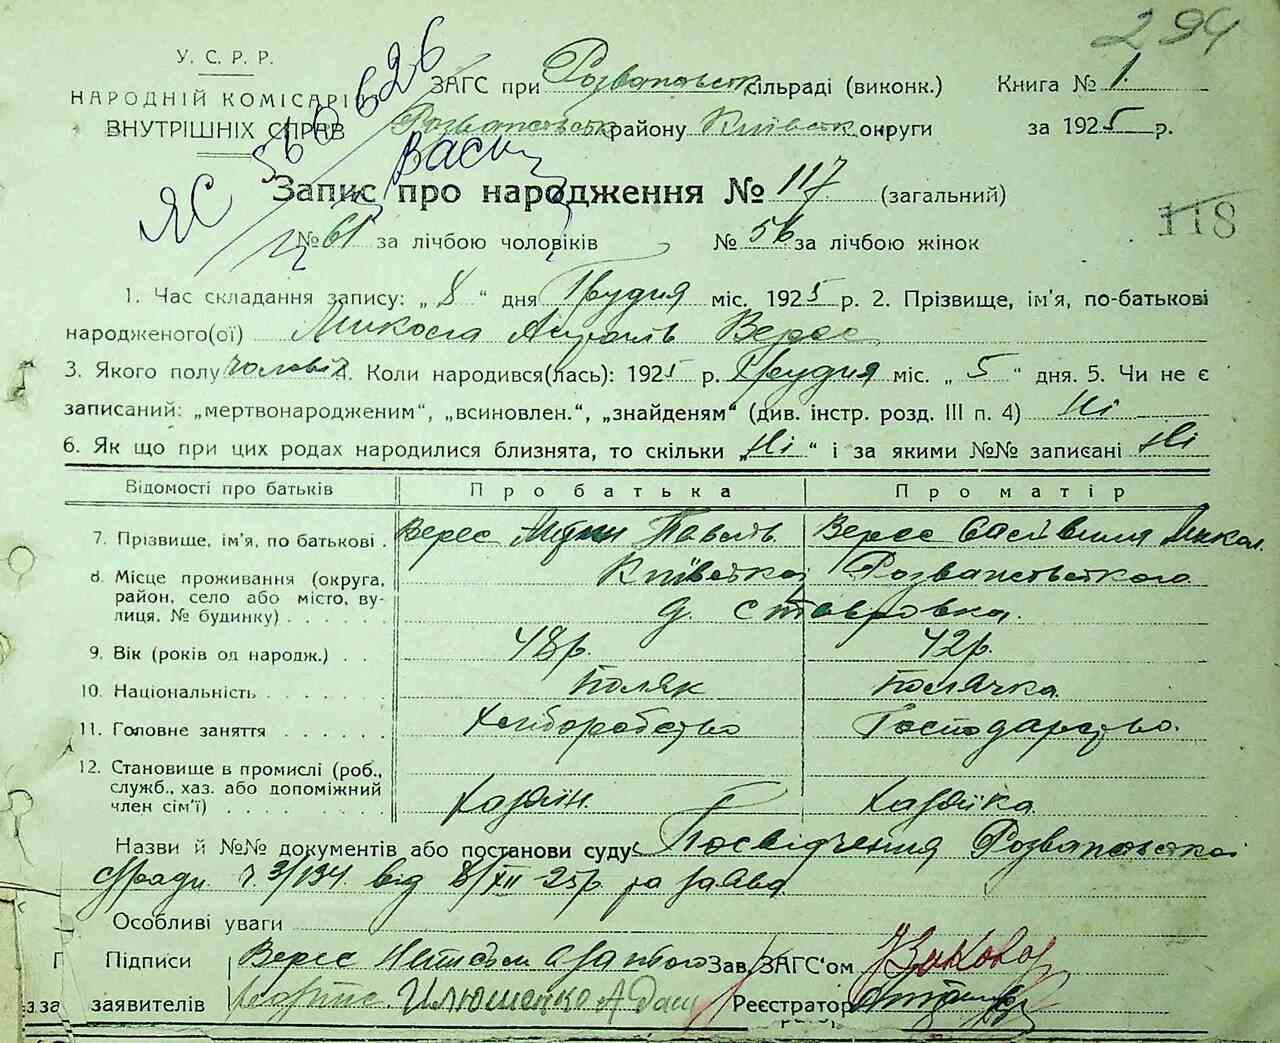 294
У. С. Р. Р.
НАРОДНІЙ КОМІСАРІЯТ
ВНУТРІШНІХ СПРАВ
ЗАГС при Розважевськ сільраді (виконк.) Книга № 1
Розважевськ району Київськ округи за 1925 р.
ЯС 566626
Запис про народження № 117 (загальний)
118
№ 61 за лічбою чоловіків № 56 за лічбою жінок
1. Час складання запису: „ 8 “ дня Грудня міс. 1925 р. 2. Прізвище, ім'я, по-батькові
народженого(ої) Микола Верес
3. Якого полу чоловіч 4. Коли народився(лась): 1925 р. Грудня міс. „ 5 “ дня. 5. Чи не є
записаний: „мертвонародженим“, „всиновлен.“, „знайденям“ (див. інстр. розд. III п. 4) Ні
6. Як що при цих родах народилися близнята, то скільки „ Ні “ і за якими №№ записані Ні
Відомості про батьків Про батька Про матір
7. Прізвище, ім'я, по батькові . Верес Верес
8. Місце проживання (округа, район, село або місто, вулиця, № будинку) . . . . . Київської Розважевського
д. Ставровка.
9. Вік (років од народж.) . . 48р. 42р.
10. Національність . . . . . . . поляк полячка
11. Головне заняття . . . . . . Хліборобство Господарство.
12. Становище в промислі (роб., служб., хаз. або допоміжний член сім'ї) . . . . . . . . . хазяїн. хазяйка
Назви й №№ документів або постанови суду: Посвідчення Розважевської
с/ради ч. 3/134 від 8/XII-25р. та заява
Особливі уваги
Підписи Верес Зав. ЗАГС'ом
заявителів Ілюшенко Реєстратор